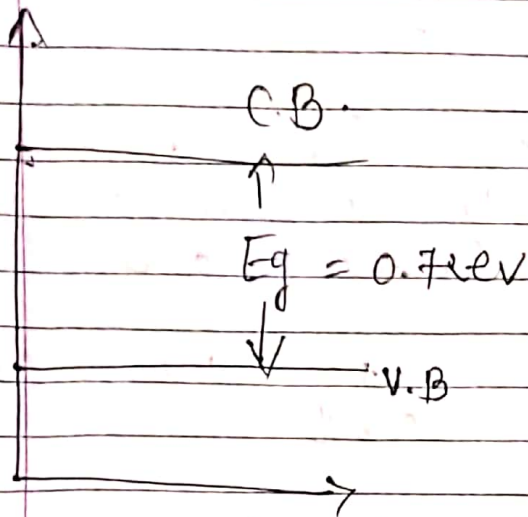 C.B.
Eg = 0.72eV
V.B